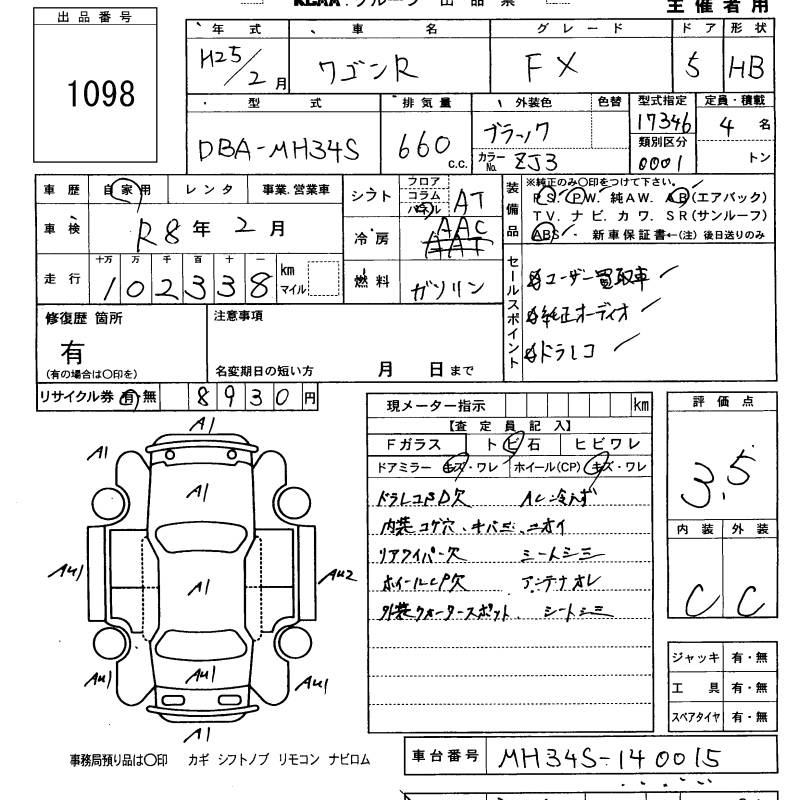 KCAA グループ 出品票
主催者用
出品番号
1098
年式 車名 グレード ドア 形状
H25/2月 ワゴンR FX 5 HB
型式 排気量 外装色 色替 型式指定 定員・積載
DBA-MH34S 660 c.c. ブラック 17346 4名
カラーNo. ZJ3 類別区分 0001 トン
車歴 自家用 レンタ 事業.営業車
車検 R8年2月
走行 十万 万 千 百 十 一
102338 km マイル
シフト フロア コラム パネル AT
冷房 AAC AAT
燃料 ガソリン
装備品
※純正のみ○印をつけて下さい。
PS. PW. 純AW. AB(エアバック)
TV. ナビ. カワ. SR(サンルーフ)
ABS 新車保証書←(注) 後日送りのみ
セールスポイント
ユーザー買取車
純正オーディオ
ドラレコ
修復歴 箇所
有
(有の場合は○印を)
注意事項
名変期日の短い方 月 日まで
リサイクル券 有・無 8930円
現メーター指示 km
【査定員記入】
Fガラス トビ石 ヒビワレ
ドアミラー キズ・ワレ ホイール(CP) キズ・ワレ
ドラレコβD欠 AC冷えず
内装コゲ穴、キバミ、ニオイ
リアワイパー欠 シートシミ
ホイールCP欠 アンテナオレ
外装ウォータースポット、シートシミ
評価点
3.5
内装 外装
C C
ジャッキ 有・無
工具 有・無
スペアタイヤ 有・無
A1
A1
A1
AU1
A1
AU2
AU1
AU1
AU1
A1
事務局預り品は○印 カギ シフトノブ リモコン ナビロム
車台番号 MH34S-140015